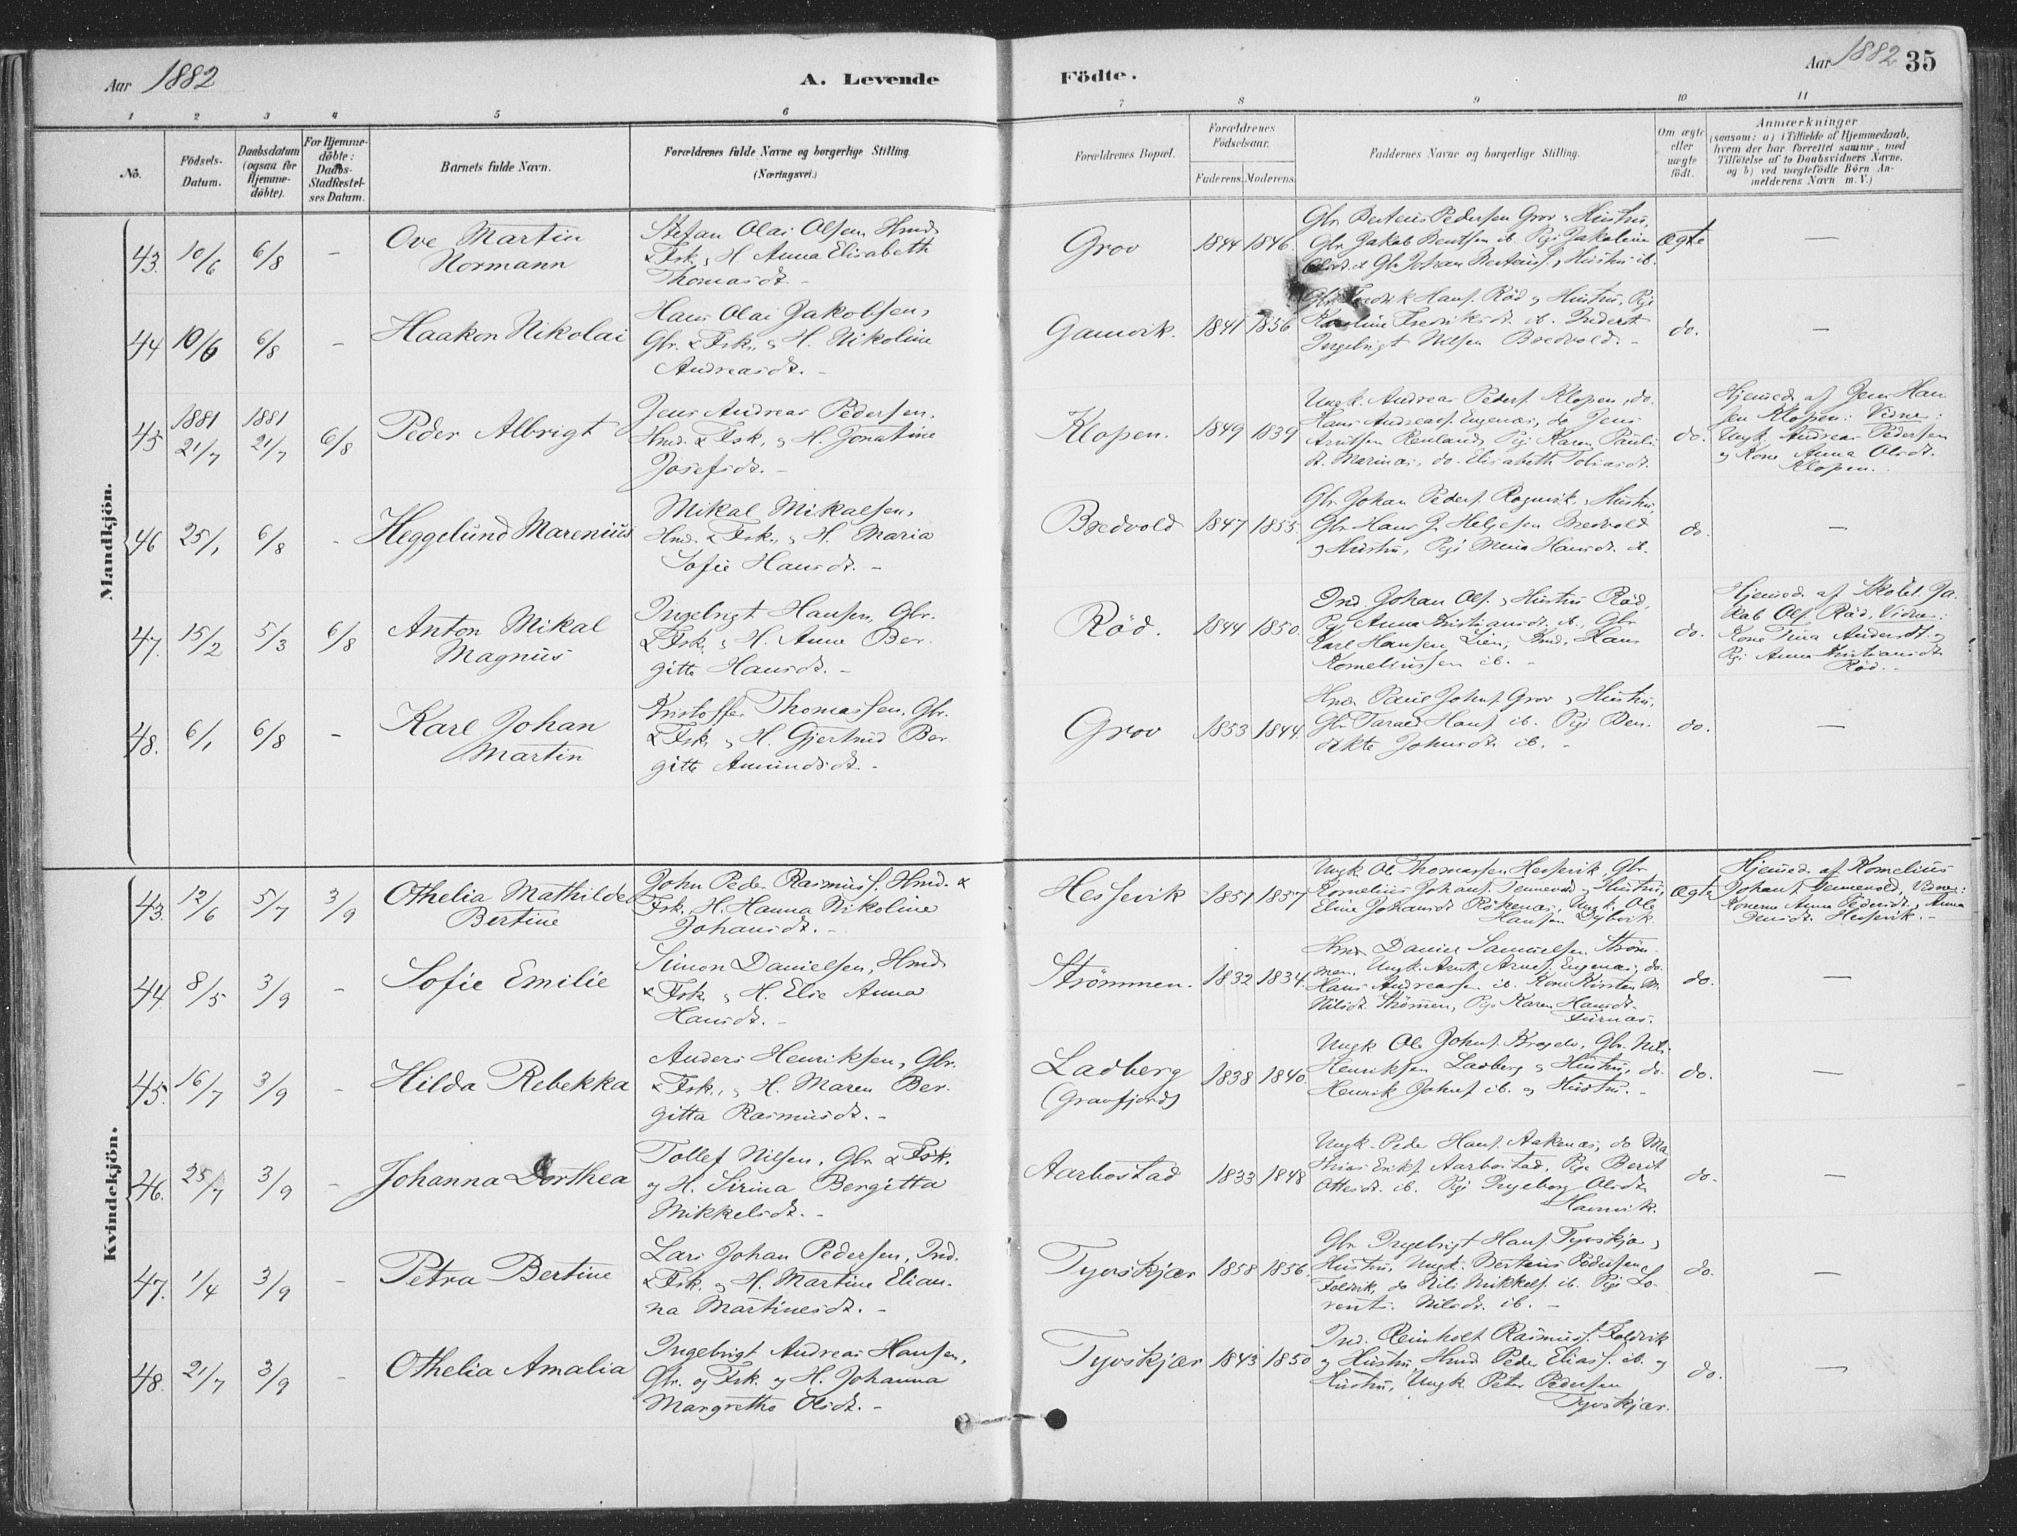 Aar 1882
A. Levende
Födte.
Aar 1882
35
1 2 3 4 5 6 7 8 9 10 11
No.
Födsels-Datum.
Daabsdatum (ogsaa for Hjemme-döbte).
For Hjemme-döbte: Daabs-Stadfæstel-ses Datum.
Barnets fulde Navn.
Forældrenes fulde Navne og borgerlige Stilling. (Næringsvei.)
Forældrenes Bopæl.
Forældrenes Födselsaar.
Faderens. Moderens.
Faddernes Navne og borgerlige Stilling.
Om ægte eller uægte födt.
Anmærkninger
(saasom: a) i Tilfælde af Hjemmedaab,
hvem der har forrettet samme, med
Tilföielse af to Daabsvidners Navne,
og b) ved uægtefödte Börn An-
melderens Navn m. V.)
Mandkjön.
43. 10/6 6/8 - Ove Martin Normann
Stefan Olai Olsen, Hmd.
& Fsk., H. Anna Elisabeth
Thomasdt. -
Grov 1844 1846.
Gbr. Berteus Pedersen Grov & Hustru,
Gbr. Jakob Bentsen ib. Pige Jakobine
Gbr. Johan Bertens. & Hustru ib.
Ægte -
44 10/6 6/8 - Haakon Nikolai
Hans Olai Jakobsen,
Gbr. & Fsk., & H. Nikoline
Andreasdt. -
Gamvik. 1841 1856
Gbr. Fredrik Hans. Rød & Hustru, Pige
Karoline Fredriksdt. ib. Inderst
Ingebrigt Nilsen Bredvold. -
do. -
45 1881 21/7 1881 21/7 6/8 Peder Albrigt
Jens Andreas Pedersen,
Hmd. & Fsk., & H. Jonatine
Josefsdt. -
Klopen. 1849 1839
Ungk. Andreas Peders. Klopen, do.
Hans Andreass. Engenæs, do. Jens
Arntsen Renland, Pige Karen Pauli-
dt. Marinæs, do. Elisabeth Tobiasdt.
do.
Hjemmed. af Jens Han-
sen Klopen: Vidner:
Ungk. Andreas Pedersen
og Kone Anna Olsdt.
Klopen. -
46 25/1 6/8 - Heggelund Marenius
Mikal Mikalsen,
Hmd. & Fsk., & H. Maria
Sofie Hansdt. -
Bredvold 1847 1855.
Gbr. Johan Peders. Rognvik & Hustru,
Gbr. Hans J. Heljesen Bredvold
& Hustru, Pige Mina Hansdt. ib.
do. -
47. 15/2 5/3 6/8 Anton Mikal Magnus
Ingebrigt Hansen, Gbr.
& Fsk., & H. Anne Ber-
gitte Hansdt. -
Rød. 1844 1850.
Ind. Johan Ols. & Hustru Rød,
Pige Anna Kristiansdt. ib., Gbr.
Karl Hansen Lien, Hmd. Hans
Korneliussen ib. -
do.
Hjemmed. af Skolel. Ja-
kob Ols. Rød, Vidner:
Kone Trina Andersdt. og
Pige Anna Kristiansdt.
Rød. -
48. 6/1 6/8 - Karl Johan Martin
Kristoffer Thomassen, Gbr.
& Fsk., & H. Gjertrud Ber-
gitte Amundsdt. -
Grov 1853 1844.
Hmd. Paul Johns. Grov & Hustru,
Gbr. Tarald Hans. ib. Pige Ben-
dikte Johnsdt. ib. -
do. -
Kvindekjön.
43. 12/6 5/7 3/9 Othelia Mathilde Bertine
John Peder Rasmuss. Hmd. &
Fsk. H. Hanna Nikoline
Johansdt. -
Hessevik 1851 1857
Ungk. Ole Thomassen Hessevik, Gbr.
Kornelius Johans. Tennevold & Hustru,
Eline Johansdt. Røkenæs, Ungk. Ole
Hansen Dybvik.
Ægte
Hjemmed. af Kornelius
Johans. Tennevold, Vidner:
Konerne Anna Pedersdt., Anna
Jensdt. Hessevik. -
44. 8/5 3/9 - Sofie Emilie
Simon Danielsen, Hmd.
& Fsk., & H. Else Anna
Hansdt. -
Strømmen. 1832 1834.
Hmd. Daniel Samuelsen Strøm-
men, Ungk. Arnt Arnes. Engenæs, do.
Hans Andreassen ib. Kone Kirsten M.
Nilsdt. Strømmen, Pige Karen Hansdt.
Furnæs.
do. -
45. 16/7 3/9 - Hilda Rebekka
Anders Henriksen, Gbr.
& Fsk., & H. Maren Ber-
gitta Rasmusdt. -
Ladberg (Gravfjord) 1838 1840.
Ungk. Ole Johns. Gbr. Nils
Henriksen Ladberg & Hustru, do.
Henrik Johns. ib. og Hustru. -
do. -
46. 25/7 3/9 - Johanna Dorthea
Tollef Nilsen, Gbr. & Fsk.
og H. Sirina Bergitta
Mikkelsdt. -
Aarbostad 1833 1848
Ungk. Peder Hans. Aakenæs, do. Ma-
thias Eriks. Aarbostad, Pige Berit
Ottesdt. ib. Pige Ingeborg Olsdt.
Havnvik.
do. -
47. 1/4 3/9 - Petra Bertine
Lars Johan Pedersen, Ind.
& Fsk., og H. Martine Elian-
na Martinesdt. -
Tyvskjær 1858 1856.
Gbr. Ingebrigt Hans. Tyvskjær &
Hustru, Ungk. Berteus Pedersen
Foldvik, do. Nils Mikkels. ib. Pige Lo-
rents. Nilsdt. ib. -
do. -
48. 21/7 3/9 - Othelia Amalia
Ingebrigt Andreas Hansen,
Gbr. og Fsk. og H. Johanna
Margrethe Olsdt. -
Tyvskjær 1843 1850
Ind. Reinholt Rasmuss. Foldvik
og Hustru, Hmd. Peder Eliass. ib. og
Hustru, Ungk. Peter Pedersen
Tyvskjær.
do. -